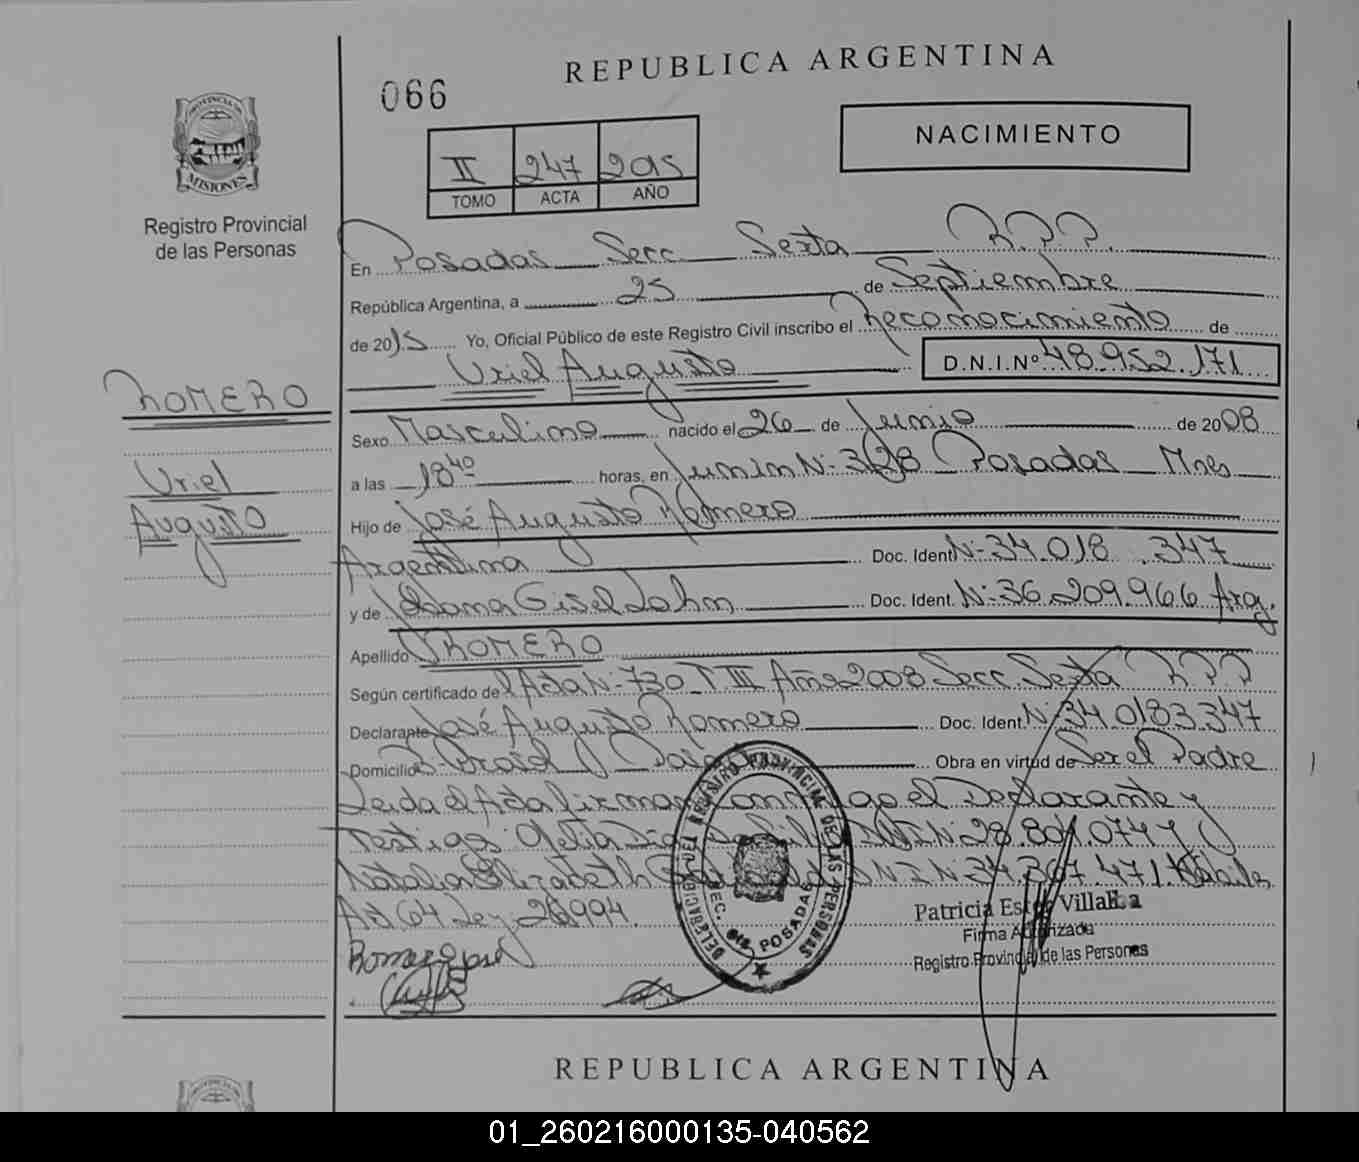 REPUBLICA ARGENTINA
066
NACIMIENTO
II 247 2015
TOMO ACTA AÑO
PROVINCIA DE
MISIONES
Registro Provincial
de las Personas
En Posadas Secc. Sexta R.P.P.
República Argentina, a 25 de Septiembre
de 2015 Yo, Oficial Público de este Registro Civil inscribo el Reconocimiento de
Uriel Augusto D.N.I.Nº 48.952.171
ROMERO
Uriel
Augusto
Sexo Masculino nacido el 26 de Junio de 2008
a las 18 40 horas, en Junin Nº Posadas Mnes
Hijo de José Augusto Romero
Argentina Doc. Ident Nº 34.018.347
y de Gisel Doc. Ident. Nº 36.209.966 Arg.
Apellido ROMERO
Según certificado del Acta Nº 730 T III Año 2008 Secc. Sexta R.P.P
Declarante José Augusto Romero Doc. Ident Nº 34.0183.347
Domicilio Bº Brasil Obra en virtud de Ser el Padre
Leida el Acta firman conmigo el Declarante y
Testigos DNI Nº 28.801.074 y
Natalia Elizabeth DNI Nº 34.367.471
Art 64 Ley 26.994.
DELEGACION DEL REGISTRO PROVINCIAL DE LAS PERSONAS
SEC. 6ta. POSADAS
Patricia Villalba
Firma Autorizada
Registro Provincial de las Personas
Romero José
REPUBLICA ARGENTINA
01_260216000135-040562